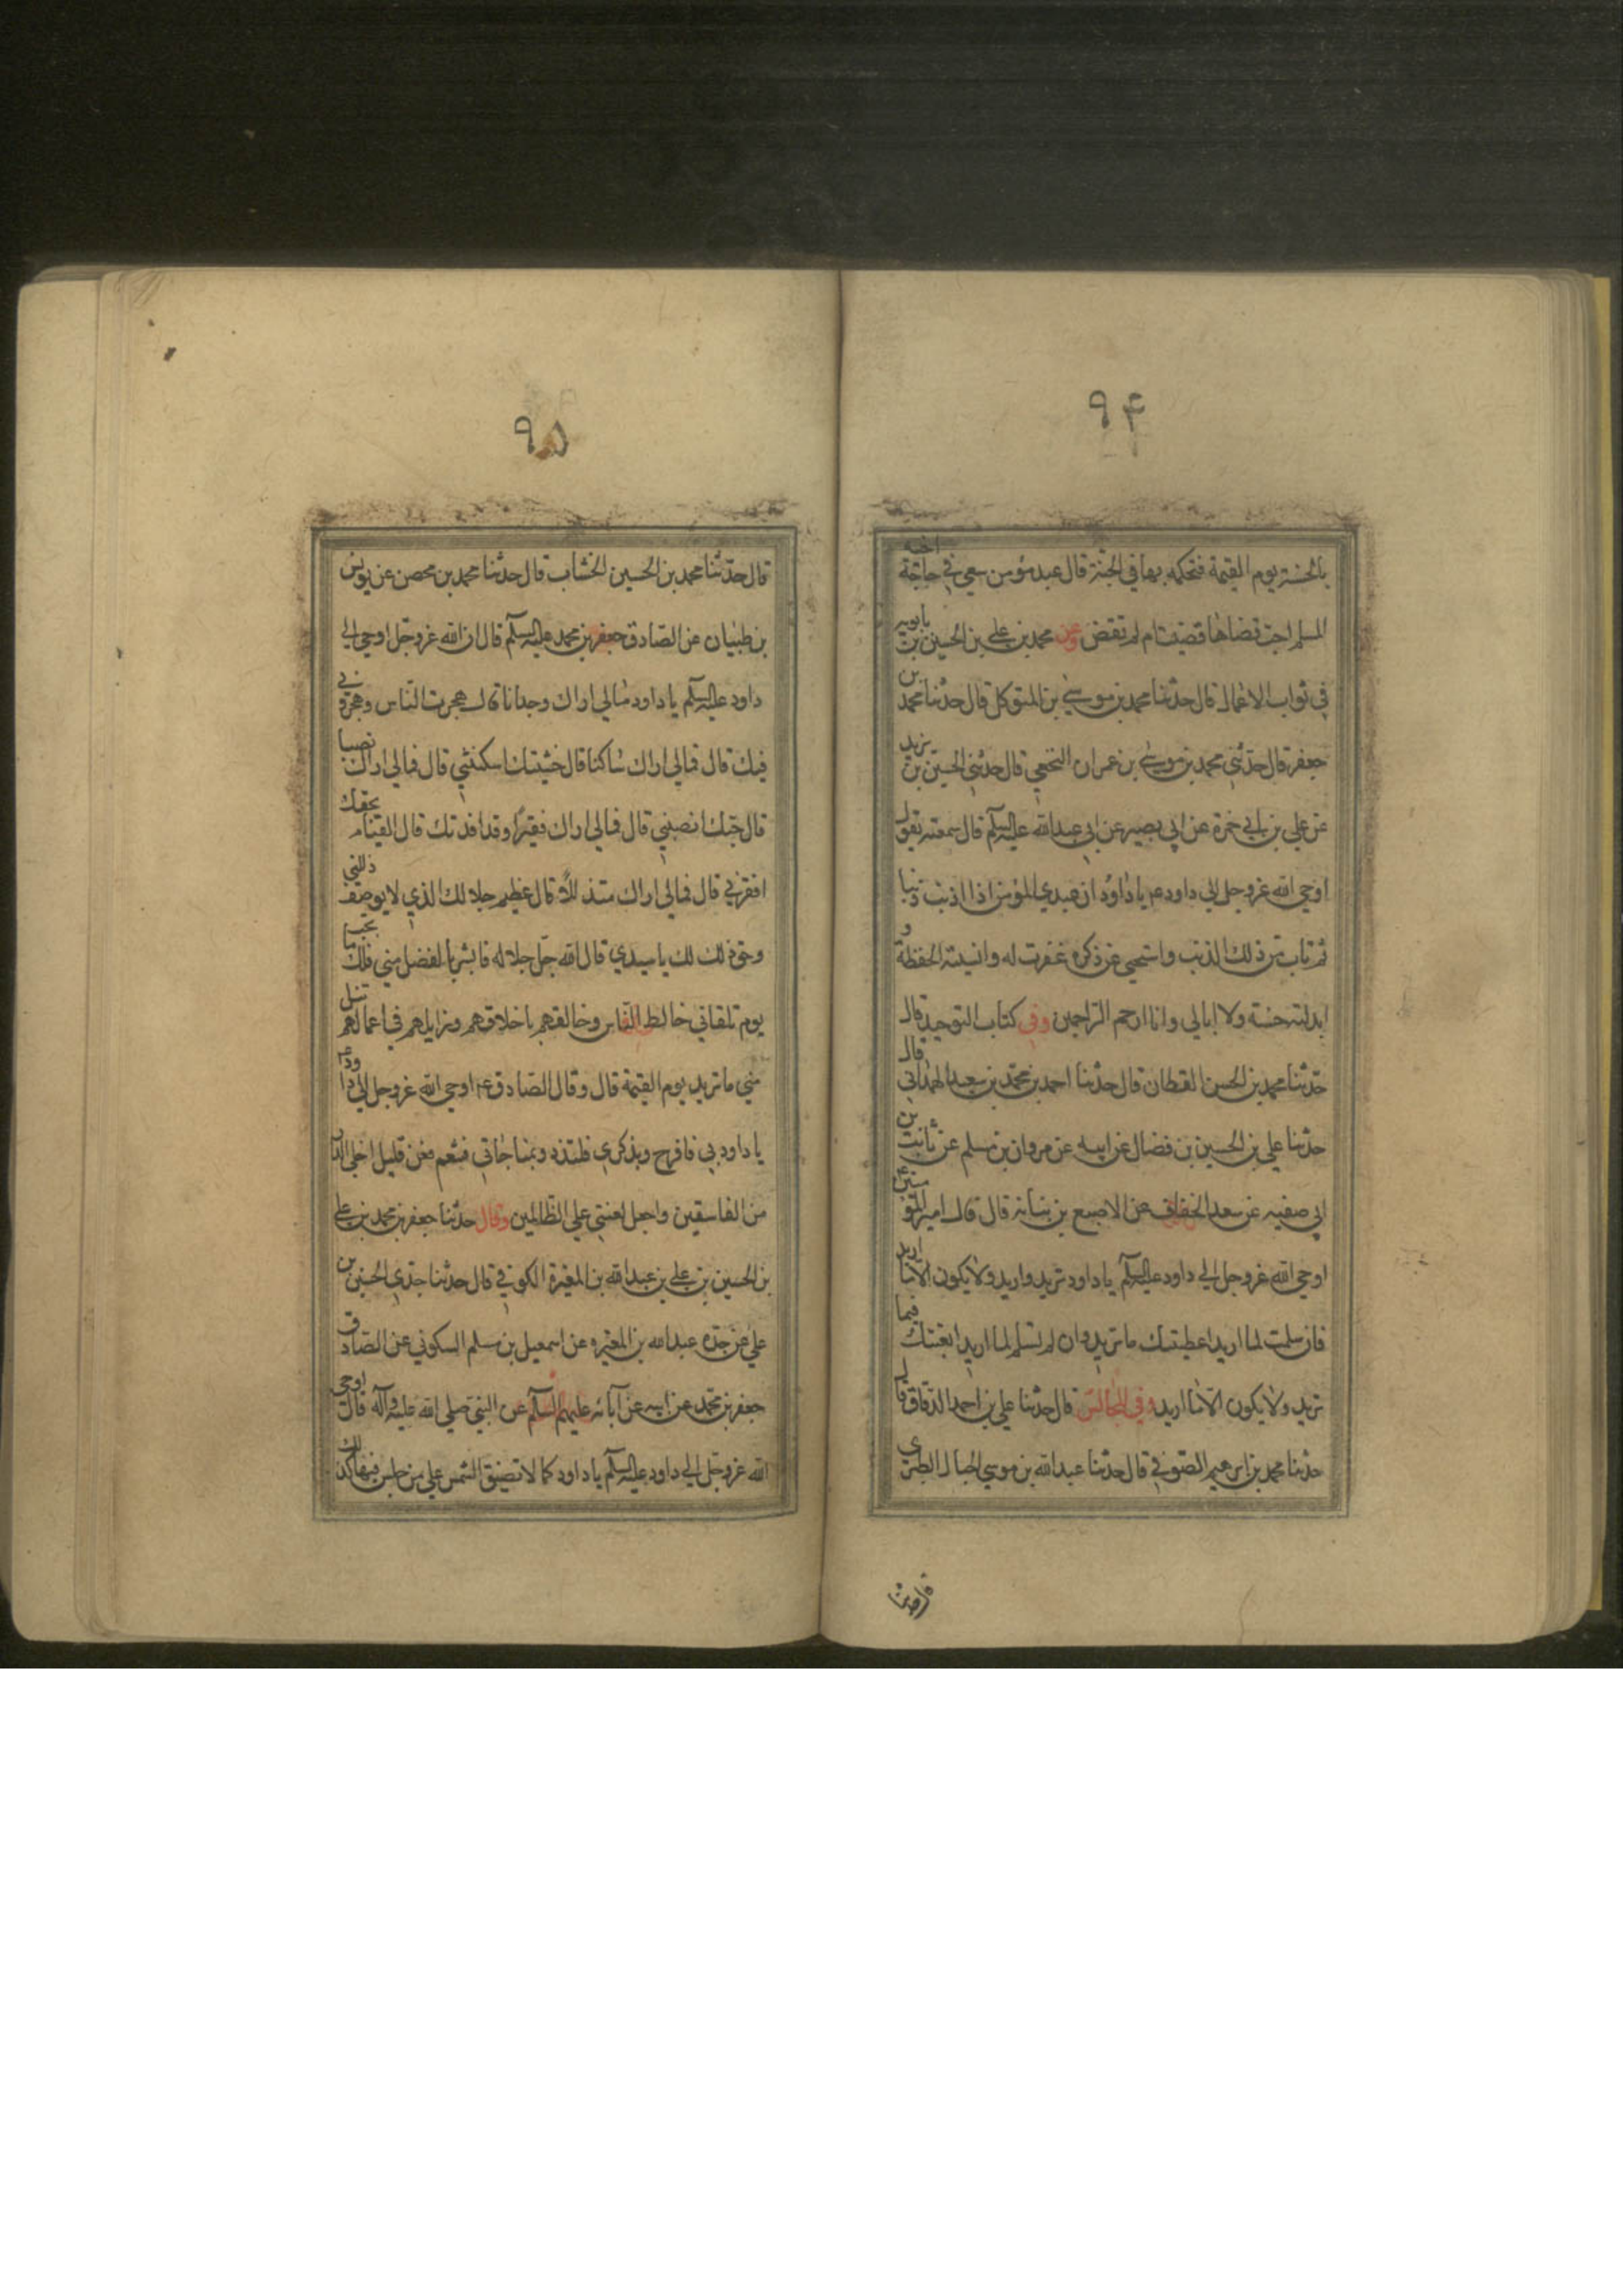 ٩۴
بالحسنة يوم القيمة فتحكمه بها في الجنة قال عبد مؤمن سعى في حاجة اخيه
المسلم احب قضاها قضيت ام لم تقض وعن محمد بن علي بن الحسين بن بابويه
في ثواب الاعمال قال حدثنا محمد بن موسى بن المتوكل قال حدثنا محمد بن
جعفر قال حدثني محمد بن موسى بن عمران النخعي قال حدثني الحسين بن يزيد
عن علي بن ابي حمزة عن ابي بصير عن ابي عبدالله عليه السلام قال سمعته يقول
اوحى الله عز وجل الى داود ع يا داود ان عبدي المؤمن اذا اذنب ذنبا
ثم تاب من ذلك الذنب واستحيى عن ذكره غفرت له وانسيته الحفظة و
ابدلته حسنة ولا ابالي وانا ارحم الراحمين وفي كتاب التوحيد قال
حدثنا محمد بن الحسن القطان قال حدثنا احمد بن محمد بن سعيد الهمداني قال
حدثنا علي بن الحسين بن فضال عن ابيه عن مروان بن مسلم عن ثابت بن
ابي صفيه عن سعد الخفاف عن الاصبع بن نباته قال قال امير المؤمنين ع
اوحى الله عز وجل الى داود عليه السلم يا داود تريد واريد ولا يكون الا ما اريد
فان سلمت لما اريد اعطيتك ما تريد وان لم تسلم لما اريد اتعبتك فيما
تريد ولا يكون الا ما اريد وفي المجالس قال حدثنا علي بن احمد الدقاق قال
حدثنا محمد بن ابرهيم الصوفي قال حدثنا عبدالله بن موسى الحبال الطبري
قال حدثنا
٩۵
قال حدثنا محمد بن الحسين الخشاب قال حدثنا محمد بن محصن عن يونس
بن ظبيان عن الصادق جعفر بن محمد عليه السلم قال ان الله عز وجل اوحى الى
داود عليه السلم يا داود مالي اراك وحدانا قال هجرت الناس وهجروني
فيك قال فمالي اراك ساكتا قال خشيتك اسكتتني قال فمالي اراك نصبا
قال حبك انصبني قال فمالي اراك فقيرا وقد افدتك قال القيام بحقك
افقرني قال فمالي اراك متذللا قال عظيم جلالك الذي لا يوصف ذللني
وحق ذلك لك يا سيدي قال الله جل جلاله فابشر بالفضل مني فلك ما تحب
يوم تلقاني خالط الناس وخالقهم باخلاقهم وزايلهم في اعمالهم تنل
مني ما تريد يوم القيمة قال وقال الصادق ع اوحى الله عز وجل الى داود ع
يا داود بي فافرح وبذكري فلتذذ وبمناجاتي فتنعم فعن قليل اخلي الدار
من الفاسقين واجعل لعنتي على الظالمين وقال حدثنا جعفر بن محمد بن علي
بن الحسين بن علي بن عبدالله بن المغيرة الكوفي قال حدثنا جدي الحسن بن
علي عن جده عبدالله بن المغيره عن اسمعيل بن مسلم السكوني عن الصادق
جعفر بن محمد عن ابيه عن آبائه عليهم السلم عن النبي صلى الله عليه وآله قال اوحى
الله عز وجل الى داود عليه السلم يا داود كما لا تضيق الشمس على من جلس فيها كذلك